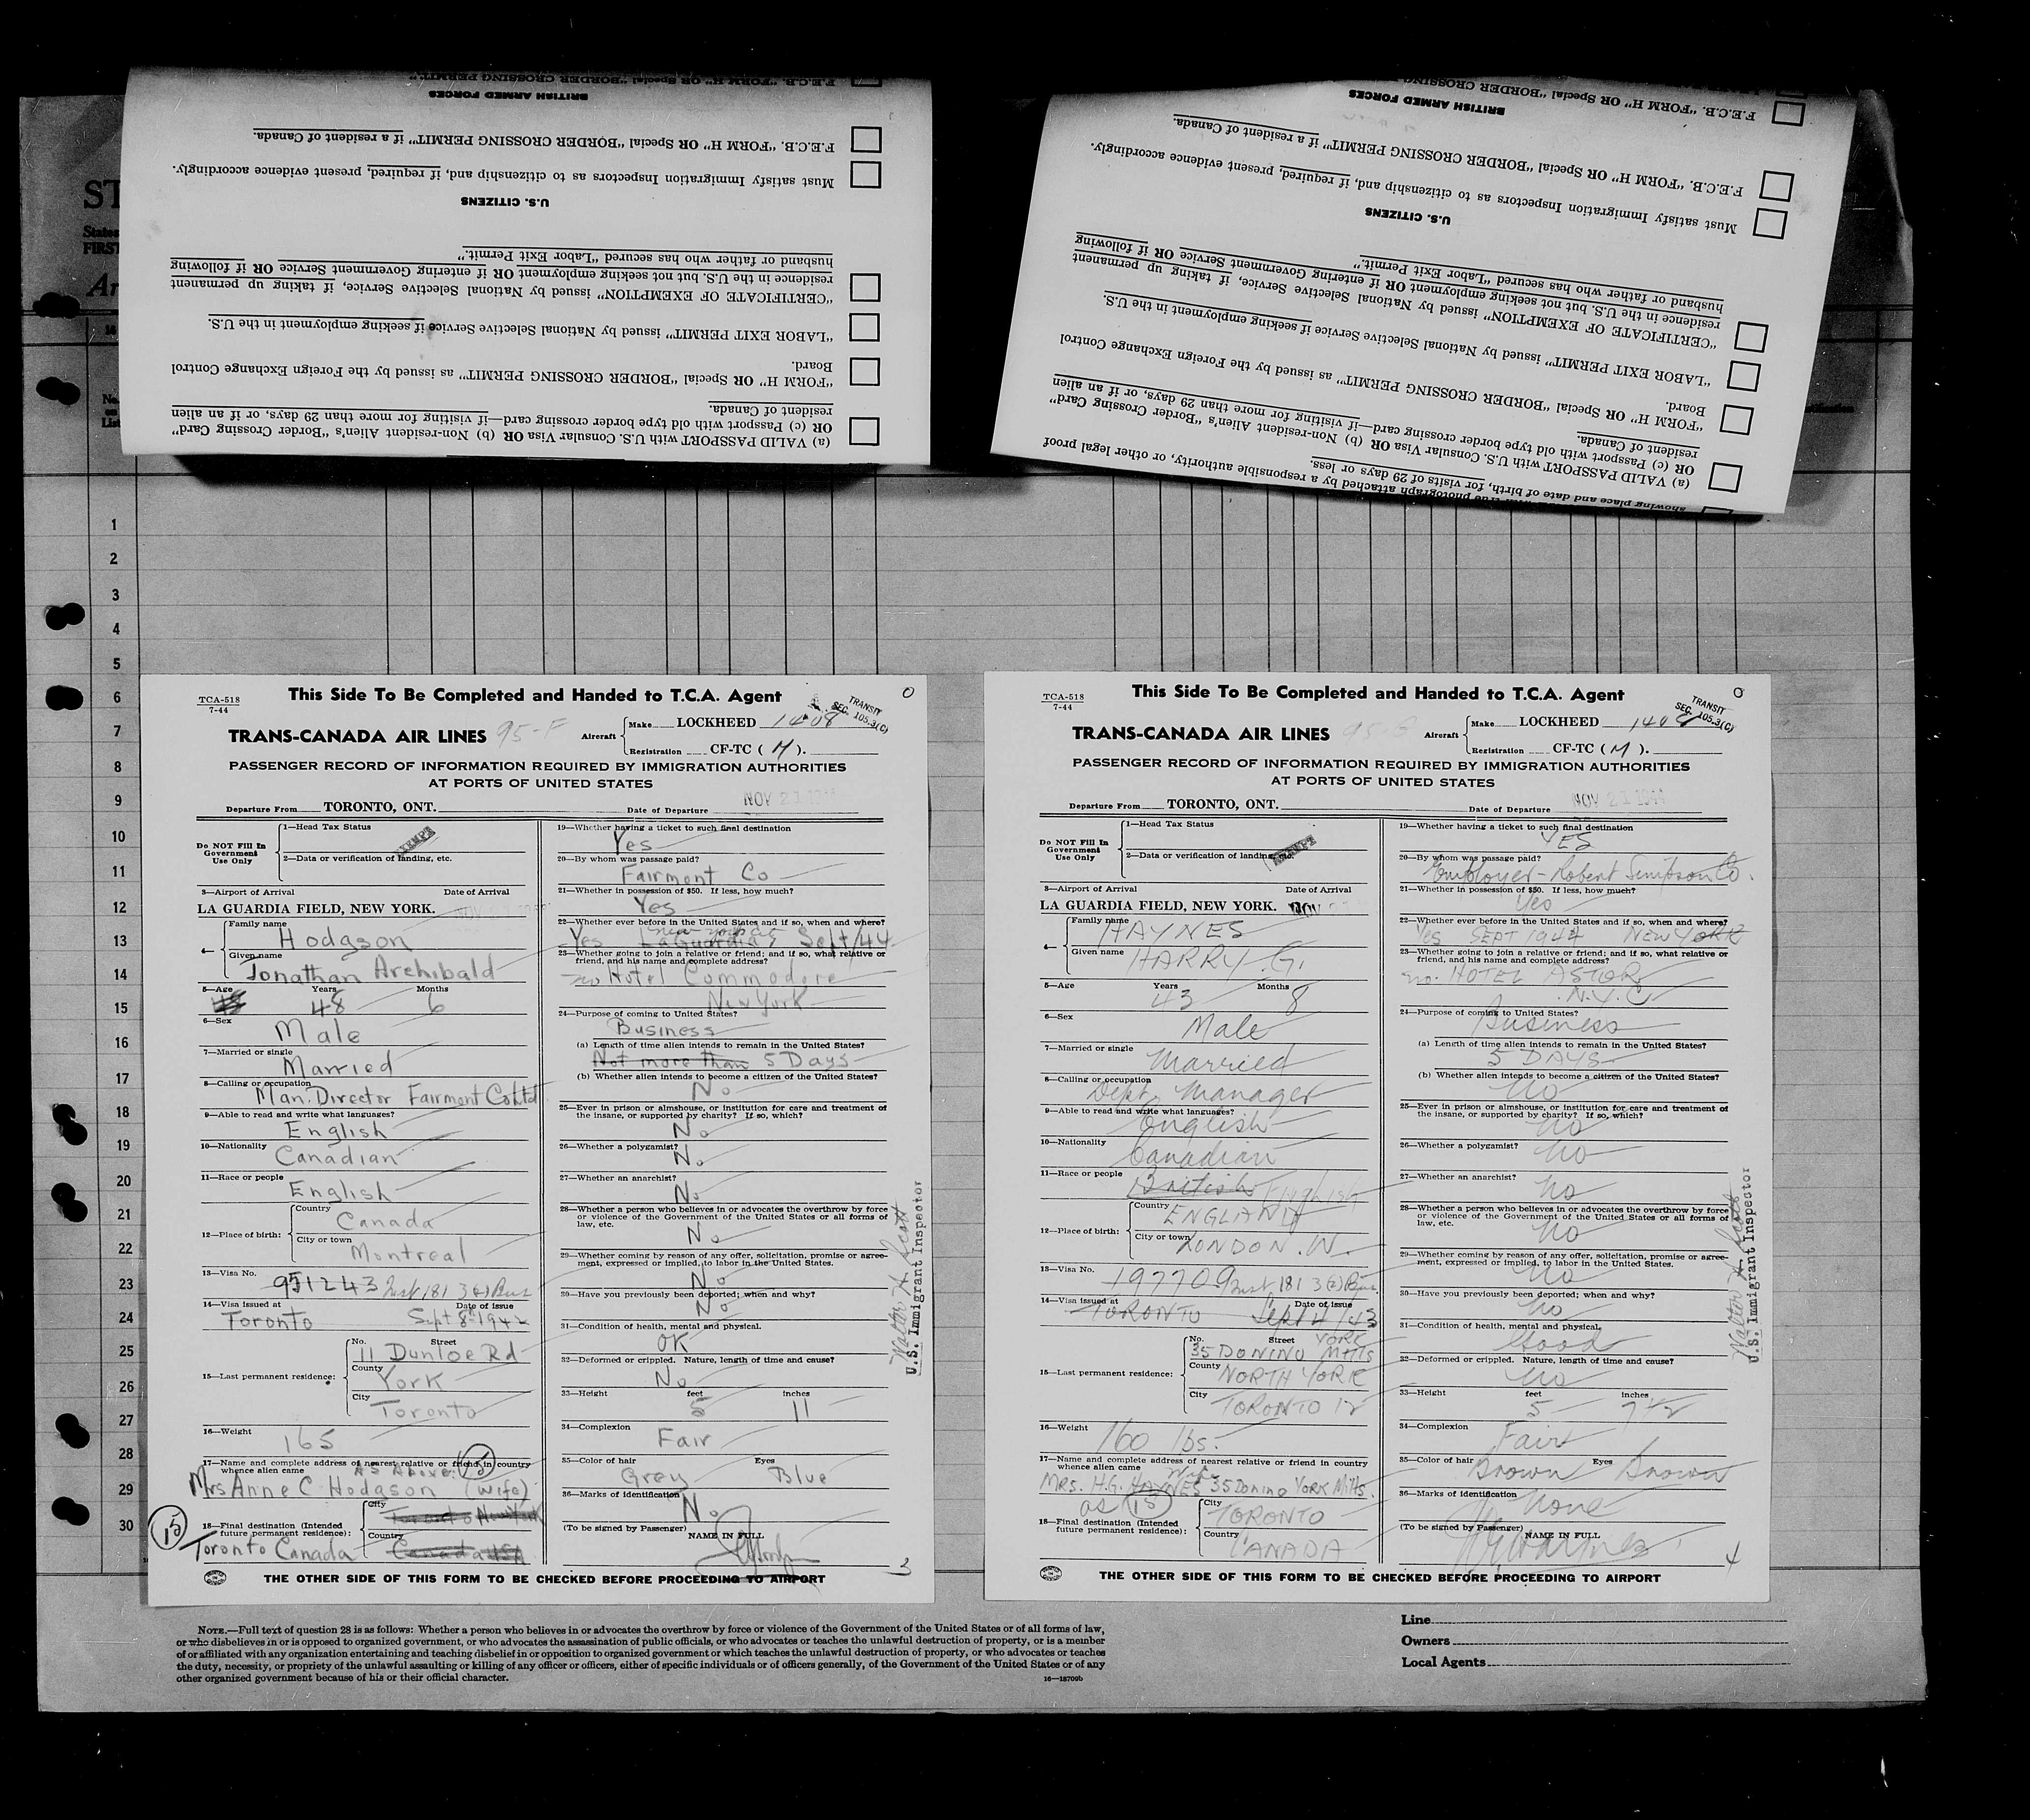 F.E.C.B. "FORM H" OR Special "BORDER CROSSING PERMIT".
BRITISH ARMED FORCES
F.E.C.B. "FORM H" OR Special "BORDER CROSSING PERMIT" if a resident of Canada.
Must satisfy Immigration Inspectors as to citizenship and, if required, present evidence accordingly.
U.S. CITIZENS
husband or father who has secured "Labor Exit Permit."
residence in the U.S. but not seeking employment OR if entering Government Service OR if following
"CERTIFICATE OF EXEMPTION" issued by National Selective Service, if taking up permanent
"LABOR EXIT PERMIT" issued by National Selective Service if seeking employment in the U.S.
Board.
"FORM H" OR Special "BORDER CROSSING PERMIT" as issued by the Foreign Exchange Control
resident of Canada.
OR (c) Passport with old type border crossing card—if visiting for more than 29 days, or if an alien
(a) VALID PASSPORT with U.S. Consular Visa OR (b) Non-resident Alien's "Border Crossing Card"
F.E.C.B. "FORM H" OR Special "BORDER CROSSING
BRITISH ARMED FORCES
F.E.C.B. "FORM H" OR Special "BORDER CROSSING PERMIT" if a resident of Canada.
Must satisfy Immigration Inspectors as to citizenship and, if required, present evidence accordingly.
U.S. CITIZENS
husband or father who has secured "Labor Exit Permit."
residence in the U.S. but not seeking employment OR if entering Government Service OR if following
"CERTIFICATE OF EXEMPTION" issued by National Selective Service, if taking up permanent
"LABOR EXIT PERMIT" issued by National Selective Service if seeking employment in the U.S.
Board.
"FORM H" OR Special "BORDER CROSSING PERMIT" as issued by the Foreign Exchange Control
resident of Canada.
OR (c) Passport with old type border crossing card—if visiting for more than 29 days, or if an alien
(a) VALID PASSPORT with U.S. Consular Visa OR (b) Non-resident Alien's "Border Crossing Card"
showing place and date of birth, for visits of 29 days or less.
true photograph attached by a responsible authority, or other legal proof
ST
States
FIRST
Ar
No.
on
List
1
2
3
4
5
6
7
8
9
10
11
12
13
14
15
16
17
18
19
20
21
22
23
24
25
26
27
28
29
30
TCA-518
7-44
This Side To Be Completed and Handed to T.C.A. Agent
O
TRANSIT
SEC. 105.3(C)
TRANS-CANADA AIR LINES 95-F
Aircraft
Make LOCKHEED 1408
Registration CF-TC ( M ).
PASSENGER RECORD OF INFORMATION REQUIRED BY IMMIGRATION AUTHORITIES
AT PORTS OF UNITED STATES
Departure From TORONTO, ONT. Date of Departure NOV 21
Do NOT Fill In Government Use Only
1—Head Tax Status
EXEMPT
2—Data or verification of landing, etc.
3—Airport of Arrival Date of Arrival
LA GUARDIA FIELD, NEW YORK.
4— Family name Hodgson
Given name Jonathan Archibald
5—Age Years 48 Months 6
6—Sex Male
7—Married or single Married
8—Calling or occupation Man. Director Fairmont Co Ltd
9—Able to read and write what languages? English
10—Nationality Canadian
11—Race or people English
12—Place of birth: Country Canada
City or town Montreal
13—Visa No. 951243
14—Visa issued at Toronto Date of issue Sept 8th 1942
15—Last permanent residence: No. Street 11 Dunloe Rd
County York
City Toronto
16—Weight 165
17—Name and complete address of nearest relative or friend in country
whence alien came As Above (15)
Mrs Anne C Hodgson (wife)
18—Final destination (Intended
future permanent residence): City Toronto New York
Country Canada USA
(15)
Toronto Canada
19—Whether having a ticket to such final destination
Yes
20—By whom was passage paid?
Fairmont Co
21—Whether in possession of $50. If less, how much?
Yes
22—Whether ever before in the United States and if so, when and where?
New York City
Yes LaGuardia Sept/44
23—Whether going to join a relative or friend; and if so, what relative or
friend, and his name and complete address?
no Hotel Commodore
New York
24—Purpose of coming to United States?
Business
(a) Length of time alien intends to remain in the United States?
Not more than 5 Days
(b) Whether alien intends to become a citizen of the United States?
No
25—Ever in prison or almshouse, or institution for care and treatment of
the insane, or supported by charity? If so, which?
No
26—Whether a polygamist?
No
27—Whether an anarchist?
No
28—Whether a person who believes in or advocates the overthrow by force
or violence of the Government of the United States or all forms of
law, etc.
No
29—Whether coming by reason of any offer, solicitation, promise or agree-
ment, expressed or implied, to labor in the United States.
No
30—Have you previously been deported; when and why?
No
31—Condition of health, mental and physical.
OK
32—Deformed or crippled. Nature, length of time and cause?
No
33—Height feet 5 inches 11
34—Complexion
Fair
35—Color of hair Grey Eyes Blue
36—Marks of identification
No
(To be signed by Passenger)
NAME IN FULL
3
Walter H Scott
U.S. Immigrant Inspector
THE OTHER SIDE OF THIS FORM TO BE CHECKED BEFORE PROCEEDING TO AIRPORT
TCA-518
7-44
This Side To Be Completed and Handed to T.C.A. Agent
O
TRANSIT
SEC. 105.3(C)
TRANS-CANADA AIR LINES 95-G
Aircraft
Make LOCKHEED 1408
Registration CF-TC ( M ).
PASSENGER RECORD OF INFORMATION REQUIRED BY IMMIGRATION AUTHORITIES
AT PORTS OF UNITED STATES
Departure From TORONTO, ONT. Date of Departure NOV 21
Do NOT Fill In Government Use Only
1—Head Tax Status
EXEMPT
2—Data or verification of landing, etc.
3—Airport of Arrival Date of Arrival
LA GUARDIA FIELD, NEW YORK. NOV
4— Family name HAYNES
Given name HARRY G.
5—Age Years 43 Months 8
6—Sex Male
7—Married or single Married
8—Calling or occupation Dept Manager
9—Able to read and write what languages? English
10—Nationality Canadian
11—Race or people British English
12—Place of birth: Country ENGLAND
City or town LONDON. W.
13—Visa No. 197709
14—Visa issued at TORONTO Date of issue Sept 4/43
15—Last permanent residence: No. Street 35 DONINO YORK MILLS
County NORTH YORK
City TORONTO 12
16—Weight 160 lbs.
17—Name and complete address of nearest relative or friend in country
whence alien came Wife
MRS. H.G. HAYNES 35 Donino YORK Mills.
as (15)
18—Final destination (Intended
future permanent residence): City TORONTO
Country CANADA
19—Whether having a ticket to such final destination
YES
20—By whom was passage paid?
Employer - Robert Simpson Co.
21—Whether in possession of $50. If less, how much?
Yes
22—Whether ever before in the United States and if so, when and where?
Yes SEPT 1944 NEW YORK
23—Whether going to join a relative or friend; and if so, what relative or
friend, and his name and complete address?
no. HOTEL ASTOR
N.Y.C
24—Purpose of coming to United States?
Business
(a) Length of time alien intends to remain in the United States?
5 DAYS
(b) Whether alien intends to become a citizen of the United States?
no
25—Ever in prison or almshouse, or institution for care and treatment of
the insane, or supported by charity? If so, which?
no
26—Whether a polygamist?
no
27—Whether an anarchist?
no
28—Whether a person who believes in or advocates the overthrow by force
or violence of the Government of the United States or all forms of
law, etc.
no
29—Whether coming by reason of any offer, solicitation, promise or agree-
ment, expressed or implied, to labor in the United States.
no
30—Have you previously been deported; when and why?
no
31—Condition of health, mental and physical.
Good
32—Deformed or crippled. Nature, length of time and cause?
no
33—Height feet 5 inches 7 1/2
34—Complexion
Fair
35—Color of hair Brown Eyes Brown
36—Marks of identification
None
(To be signed by Passenger)
NAME IN FULL
4
Walter H Scott
U.S. Immigrant Inspector
THE OTHER SIDE OF THIS FORM TO BE CHECKED BEFORE PROCEEDING TO AIRPORT
NOTE.—Full text of question 28 is as follows: Whether a person who believes in or advocates the overthrow by force or violence of the Government of the United States or of all forms of law,
or who disbelieves in or is opposed to organized government, or who advocates the assassination of public officials, or who advocates or teaches the unlawful destruction of property, or is a member
of or affiliated with any organization entertaining and teaching disbelief in or opposition to organized government or which teaches the unlawful destruction of property, or who advocates or teaches
the duty, necessity, or propriety of the unlawful assaulting or killing of any officer or officers, either of specific individuals or of officers generally, of the Government of the United States or of any
other organized government because of his or their official character.
16—18709b
Line
Owners
Local Agents